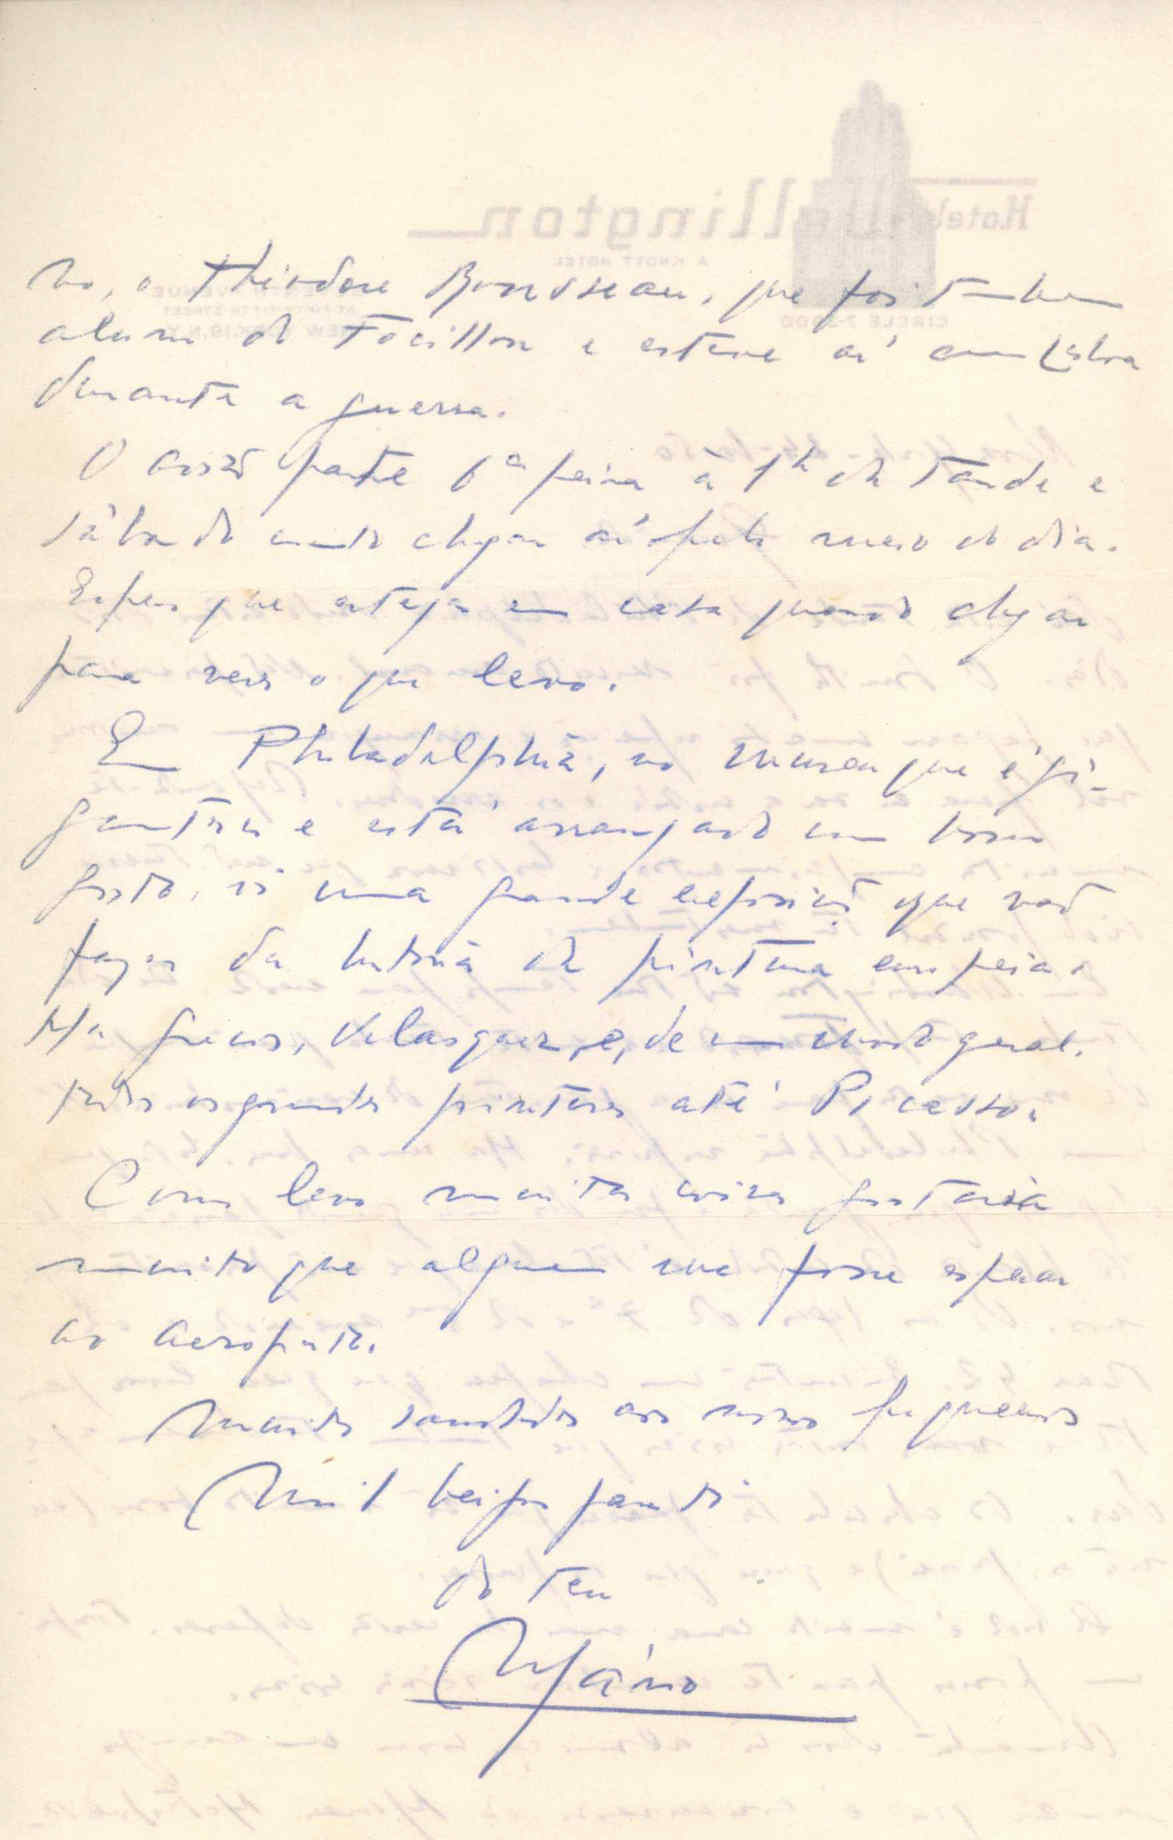 no, o Théodore Rousseau, que foi tambem
aluno de Focillon e esteve aí em Lisboa
durante a guerra.
O avião parte 6ª feira à 1h da tarde e
sábado devo chegar aí pelo meio do dia.
Espero que estejas em casa quando chegar
para veres o que levo.
Em Philadelphia, no museu que é gi-
gantesco e está arranjado com bom
gosto, vi uma grande exposição que vão
fazer da historia da pintura europeia.
Ha Grecos, Velasquez, e, de um modo geral,
todos os grandes pintores até Picasso.
Como levo muitas coisas gostaria
muito que alguem me fosse esperar
ao aeroporto.
Muitas saudades aos nossos pequenos
Mil beijos para ti
do teu
Mário
Hotel Wellington
A KNOTT HOTEL
CIRCLE 7-3900